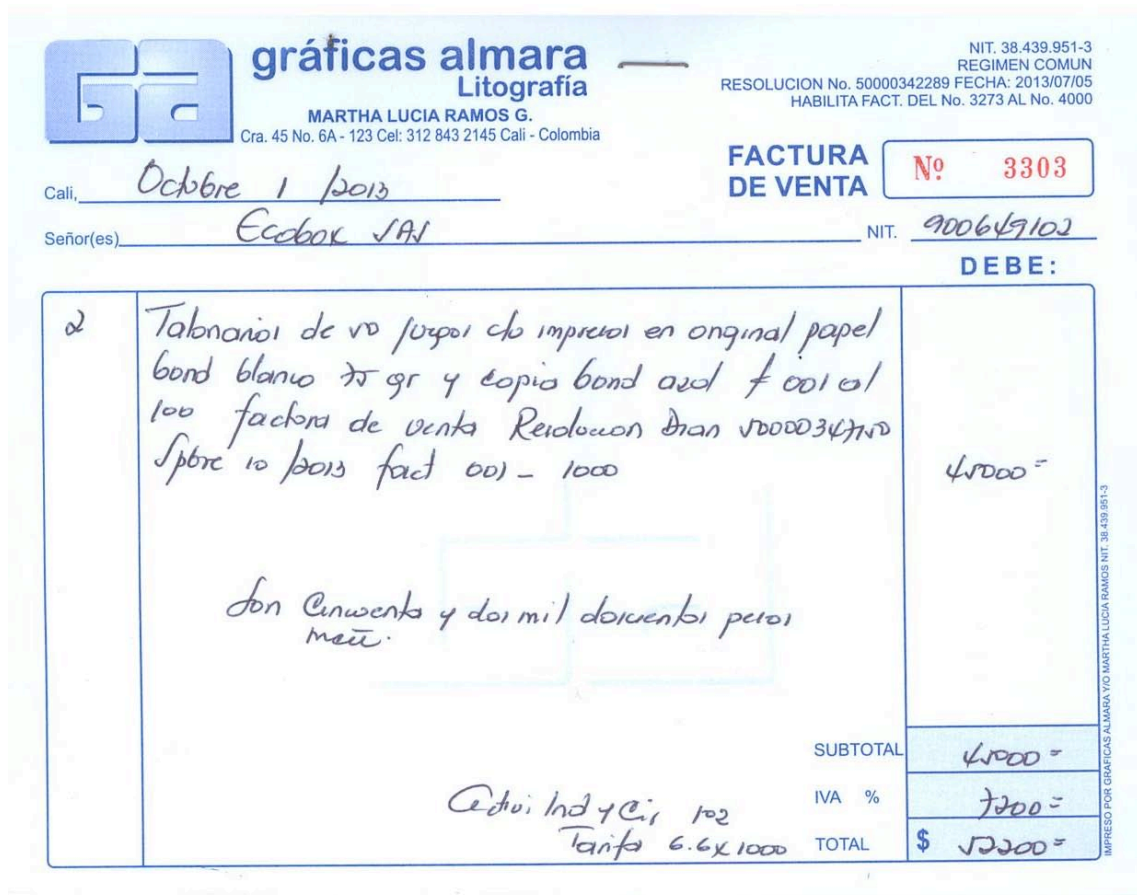 Ga
gráficas almara
Litografía
MARTHA LUCIA RAMOS G.
Cra. 45 No. 6A - 123 Cel: 312 843 2145 Cali - Colombia
NIT. 38.439.951-3
REGIMEN COMUN
RESOLUCION No. 50000342289 FECHA: 2013/07/05
HABILITA FACT. DEL No. 3273 AL No. 4000
FACTURA DE VENTA
Nº 3303
Cali, Octubre 1 /2013
Señor(es) Ecobox SAS NIT. 900649102
DEBE:
2 Talonarios de 50 juegos c/u impresos en original papel
bond blanco 75 gr y copia bond azul # 001 al
100 factura de venta Resolucion Dian
Spbre 10 /2013 fact 001 - 1000 45000=
Son Cincuenta y dos mil doscientos pesos
mcte.
SUBTOTAL 45000=
Activi Ind y Cio 102 IVA % 7200=
Tarifa 6.6 x 1000 TOTAL $ 52200=
IMPRESO POR GRAFICAS ALMARA Y/O MARTHA LUCIA RAMOS NIT. 38.439.951-3